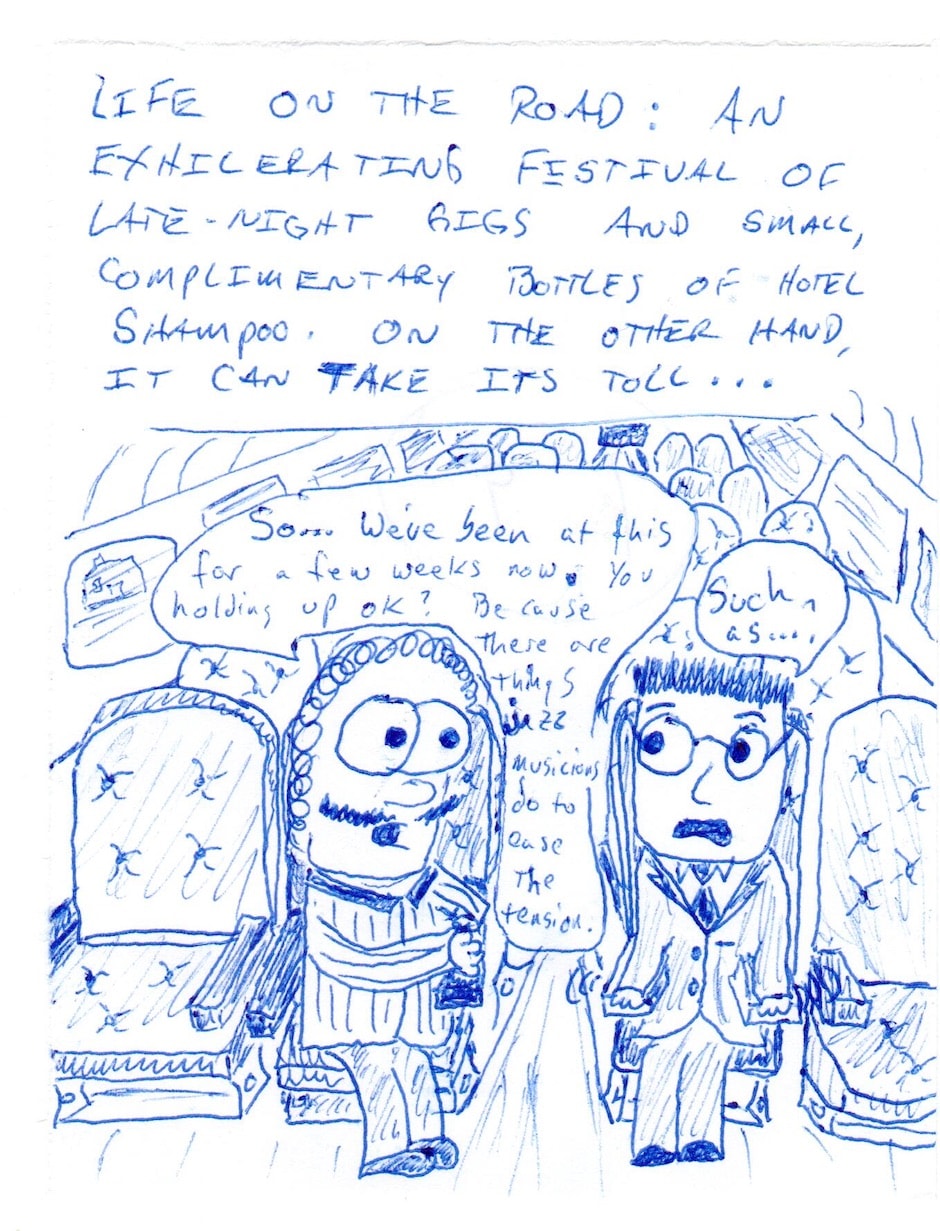 LIFE ON THE ROAD: AN
EXHILERATING FESTIVAL OF
LATE-NIGHT GIGS AND SMALL,
COMPLIMENTARY BOTTLES OF HOTEL
SHAMPOO. ON THE OTHER HAND,
IT CAN TAKE ITS TOLL...
So.... We've been at this
for a few weeks now. You
holding up ok? Because
there are
things
jazz
musicians
do to
ease
the
tension.
Such
as....